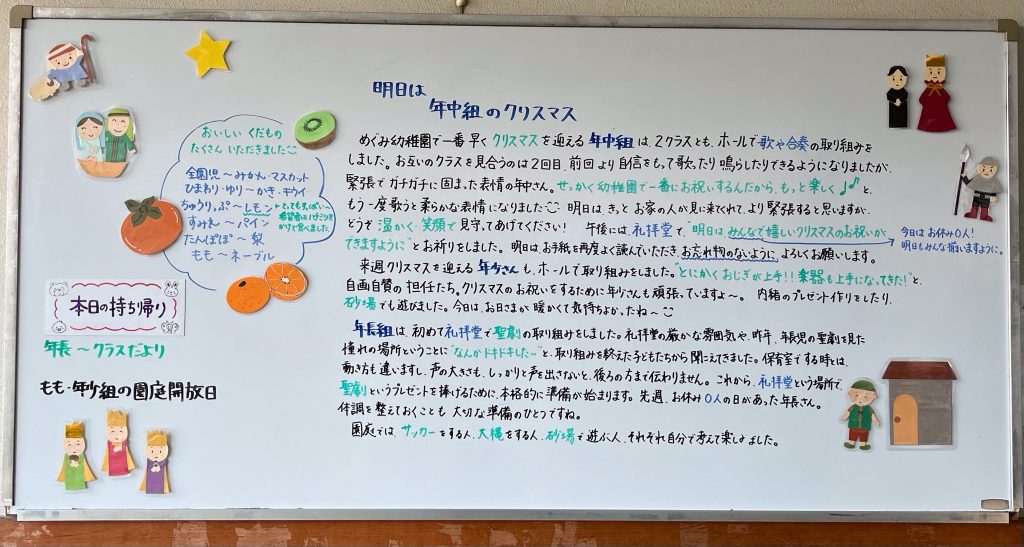 明日は
年中組のクリスマス
めぐみ幼稚園で一番早くクリスマスを迎える年中組は2クラスとも、ホールで歌や合奏の取り組みを
しました。お互いのクラスを見合うのは2回目。前回より自信をもって歌ったり鳴らしたりできるようになりましたが、
緊張でガチガチに固まった表情の年中さん。せっかく幼稚園で一番にお祝いするんだから、もっと楽しく♪♪と、
もう一度歌うと柔らかな表情になりました 明日は、きっとお家の人が見に来てくれて、より緊張すると思いますが、
どうぞ温かく笑顔で見守ってあげてください! 午後には、礼拝堂で“明日はみんなで嬉しいクリスマスのお祝いが
できますように”とお祈りをしました。明日はお手紙を再度よく読んでいただき、お忘れ物のないように、よろしくお願いします。
今日はお休み0人!
明日もみんな揃いますように。
来週クリスマスを迎える年少さんも、ホールで取り組みをしました。“とにかくおじぎが上手!!楽器も上手になってきた!”と、
自画自賛の担任たち。クリスマスのお祝いをするために年少さんも頑張っていますよ〜。 内緒のプレゼント作りをしたり、
砂場でも遊びました。今日は、お日さまが暖かくて気持ちよかったね〜
年長組は、初めて礼拝堂で聖劇の取り組みをしました。礼拝堂の厳かな雰囲気や、昨年、年長児の聖劇を見た
憧れの場所ということに“なんかドキドキしたー”と、取り組みを終えた子どもたちから聞こえてきました。保育室でする時とは、
動き方も違いますし、声の大きさも、しっかりと声を出さないと、後ろの方まで伝わりません。これから、礼拝堂という場所で、
聖劇というプレゼントを捧げるために、本格的に準備が始まります。先週、お休み0人の日があった年長さん。
体調を整えておくことも大切な準備のひとつですね。
園庭では、サッカーをする人、大縄をする人、砂場で遊ぶ人、それぞれ自分で考えて楽しみました。
おいしいくだもの
たくさんいただきました
全園児〜みかん・マスカット
ひまわり・ゆり〜かき・キウイ
ちゅうりっぷ〜レモン
すみれ〜パイン
たんぽぽ〜梨
もも〜ネーブル
本日の持ち帰り
年長〜クラスだより
もも・年少組の園庭開放日